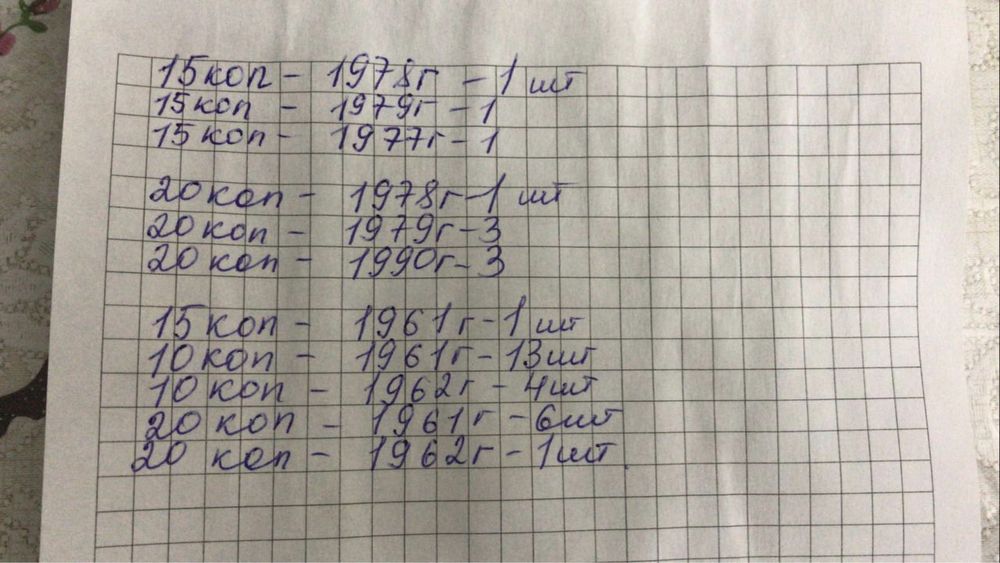 15 коп - 1978г - 1 шт
15 коп - 1979г - 1
15 коп - 1977г - 1
20 коп - 1978г - 1 шт
20 коп - 1979г - 3
20 коп - 1990г - 3
15 коп - 1961г - 1 шт
10 коп - 1961г - 13 шт
10 коп - 1962г - 4 шт
20 коп - 1961г - 6 шт
20 коп - 1962г - 1 шт.